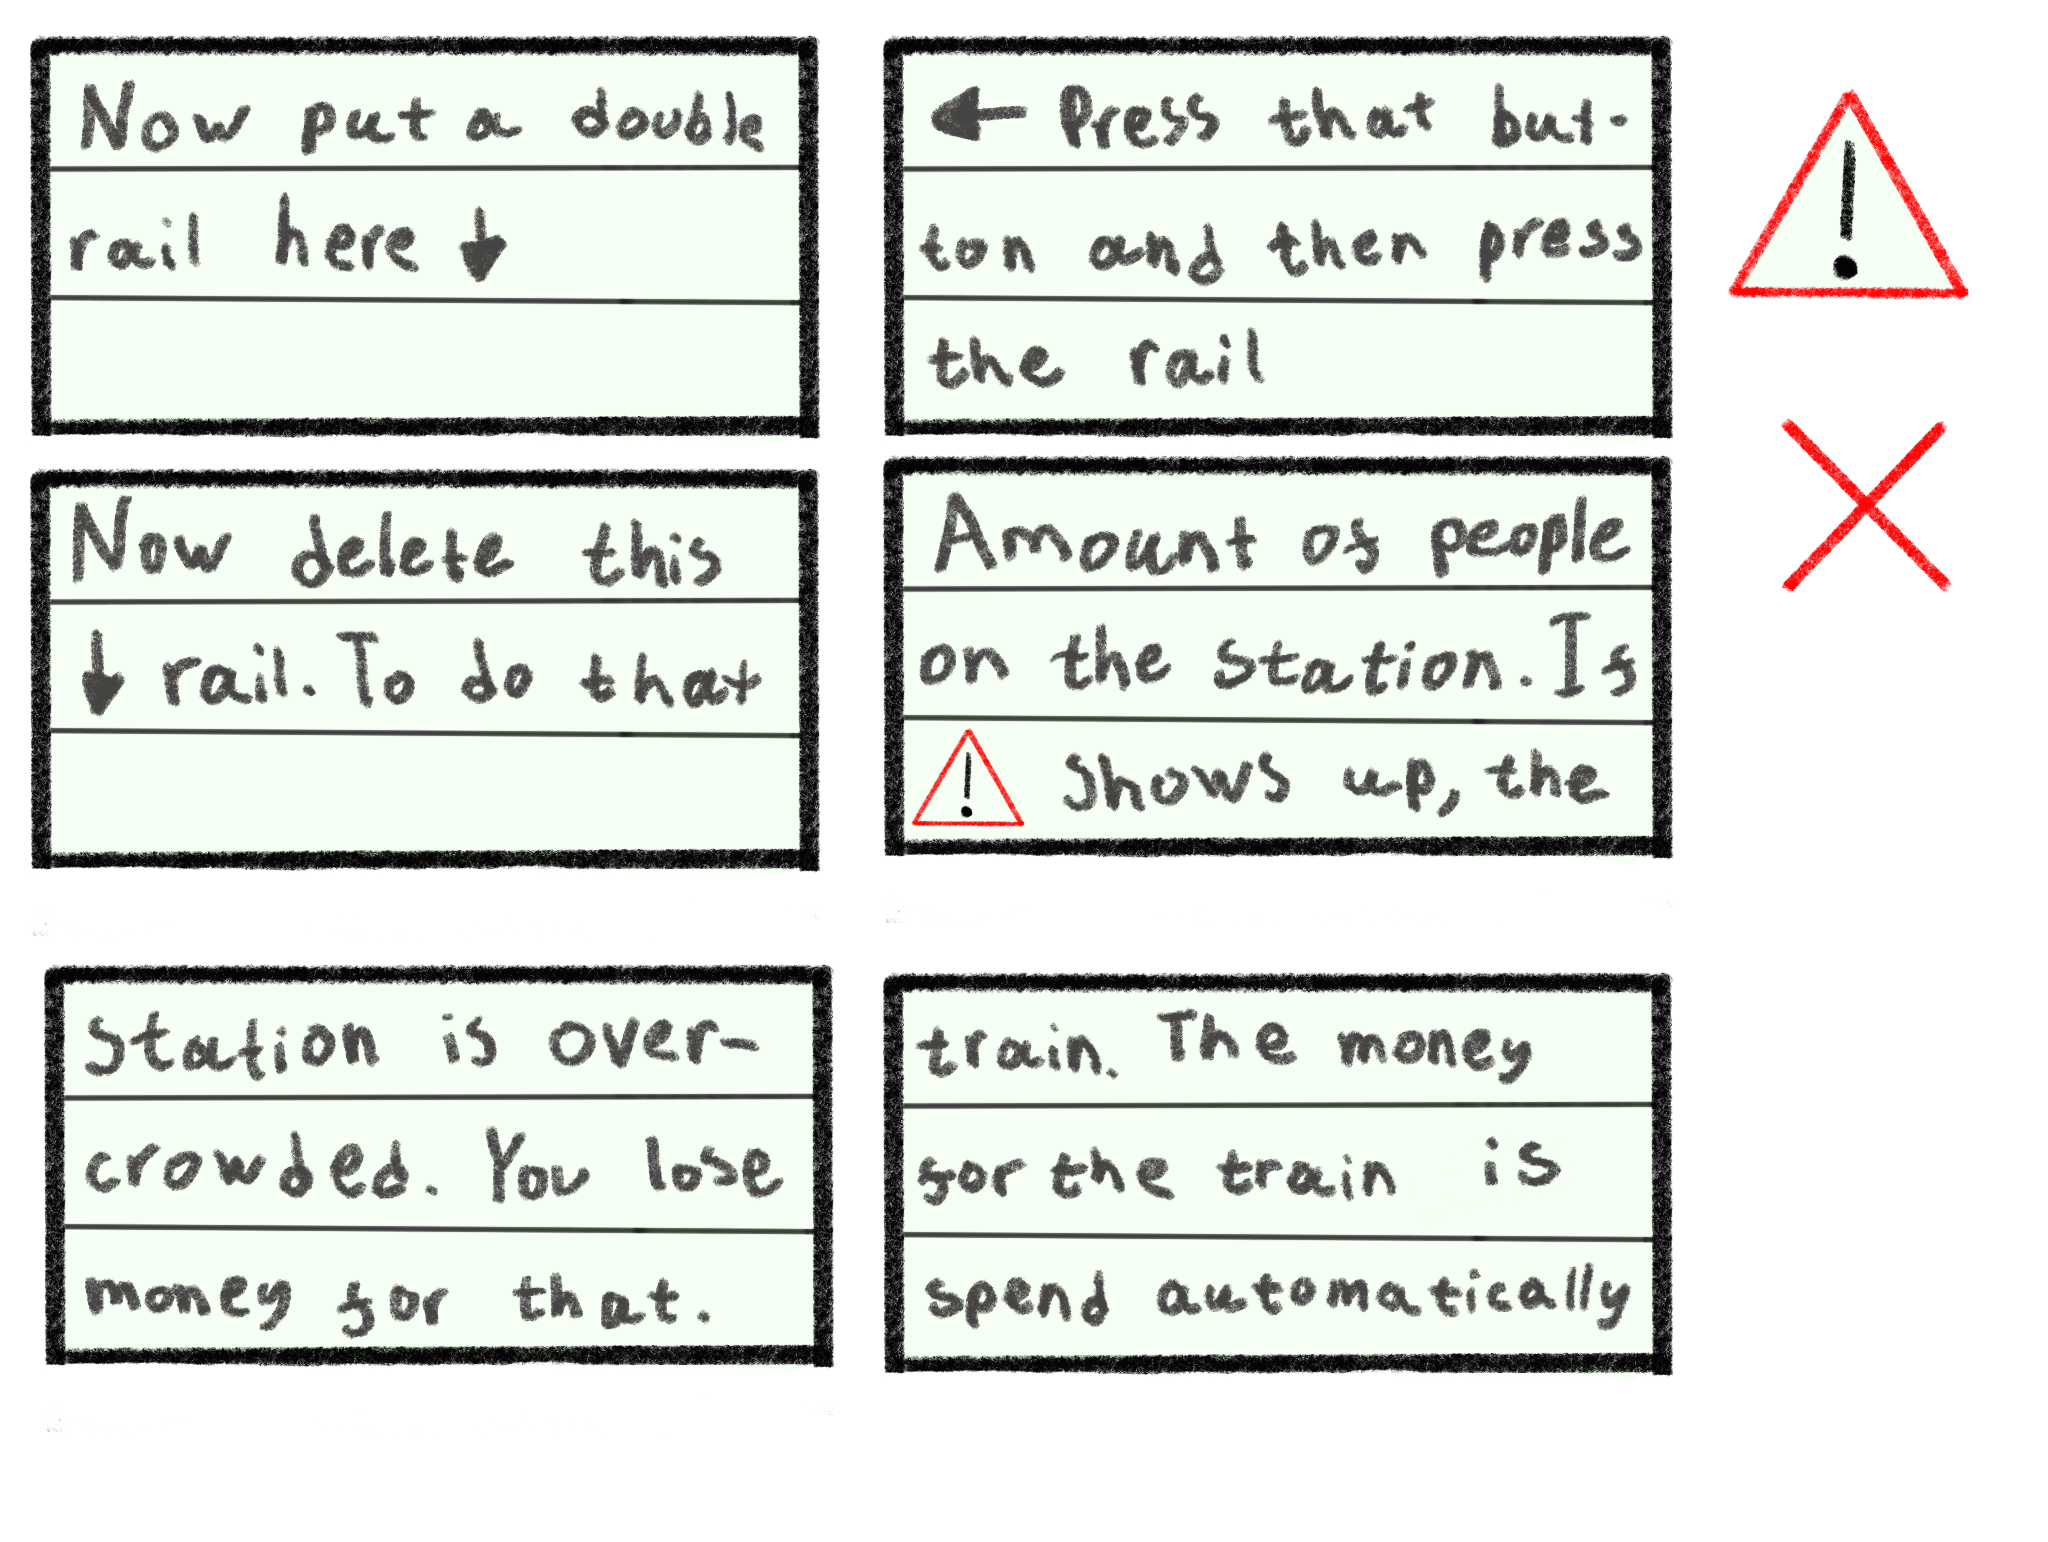 Now put a double
rail here ↓
← Press that but-
ton and then press
the rail
Now delete this
↓ rail. To do that
Amount of people
on the station. If
⚠ shows up, the
station is over-
crowded. You lose
money for that.
train. The money
for the train is
spend automatically
!